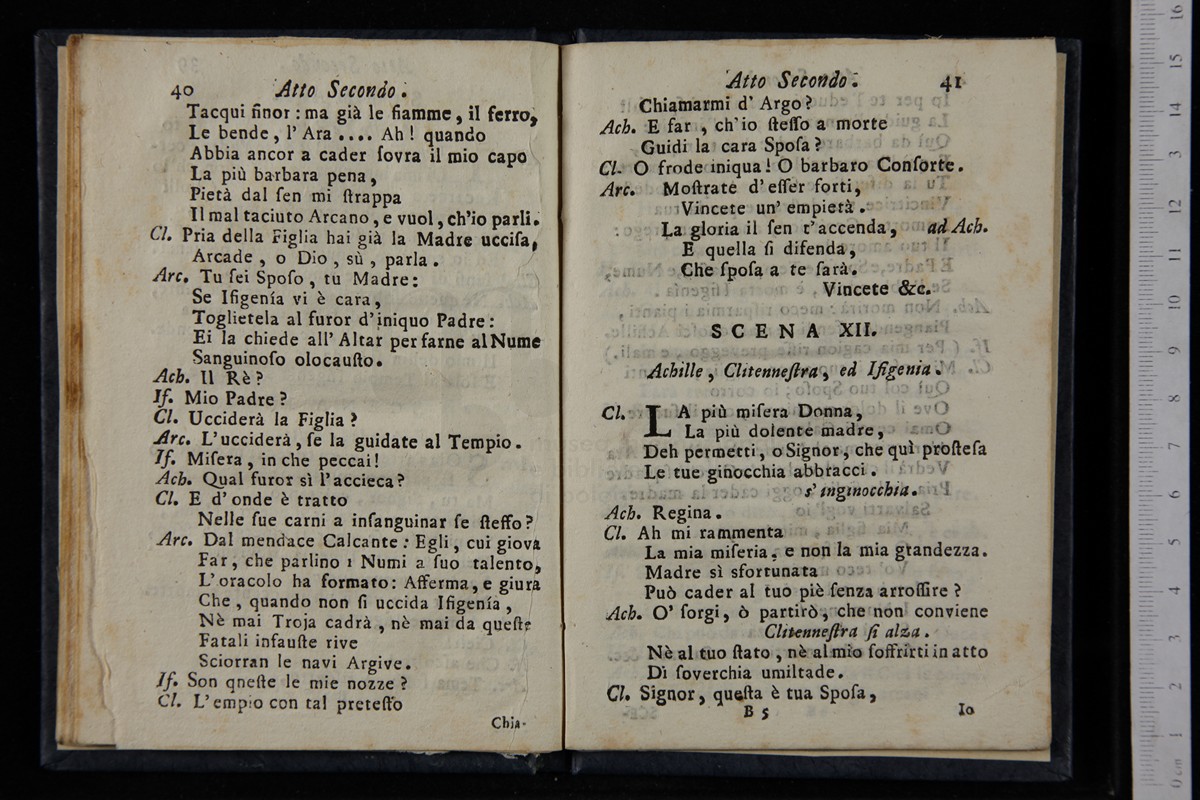 40 Atto Secondo.
Tacqui finor : ma già le fiamme, il ferro,
Le bende, l' Ara .... Ah! quando
Abbia ancor a cader ſovra il mio capo
La più barbara pena,
Pietà dal ſen mi ſtrappa
Il mal taciuto Arcano, e vuol, ch'io parli.
Cl. Pria della Figlia hai già la Madre ucciſa,
Arcade, o Dio, sù, parla.
Arc. Tu ſei Spoſo, tu Madre:
Se Ifigenía vi è cara,
Toglietela al furor d'iniquo Padre:
Ei la chiede all' Altar per farne al Nume
Sanguinoſo olocauſto.
Ach. Il Rè?
If. Mio Padre?
Cl. Ucciderà la Figlia?
Arc. L'ucciderà, ſe la guidate al Tempio.
If. Miſera, in che peccai!
Ach. Qual furor sì l'accieca?
Cl. E d' onde è tratto
Nelle ſue carni a inſanguinar ſe ſteſſo?
Arc. Dal mendace Calcante: Egli, cui giova
Far, che parlino i Numi a ſuo talento,
L' oracolo ha formato: Afferma, e giura
Che, quando non ſi uccida Ifigenía,
Nè mai Troja cadrà, nè mai da queſte
Fatali infauſte rive
Sciorran le navi Argive.
If. Son qneſte le mie nozze?
Cl. L' empio con tal preteſto
Chia-
Atto Secondo. 41
Chiamarmi d' Argo?
Ach. E far, ch'io ſteſſo a morte
Guidi la cara Spoſa?
Cl. O frode iniqua! O barbaro Conſorte.
Arc. Moſtrate d'eſſer forti,
Vincete un' empietà.
La gloria il ſen t'accenda, ad Ach.
E quella ſi difenda,
Che ſpoſa a te ſarà.
Vincete &c.
SCENA XII.
Achille, Clitenneſtra, ed Ifigenia.
Cl. LA più miſera Donna,
La più dolente madre,
Deh permetti, o Signor, che quì proſteſa
Le tue ginocchia abbracci.
s' inginocchia.
Ach. Regina.
Cl. Ah mi rammenta
La mia miſeria, e non la mia grandezza.
Madre sì sfortunata
Può cader al tuo piè ſenza arroſſire?
Ach. O' ſorgi, ò partirò, che non conviene
Clitenneſtra ſi alza.
Nè al tuo ſtato, nè al mio ſoffrirti in atto
Di ſoverchia umiltade.
Cl. Signor, queſta è tua Spoſa,
B 5 Io